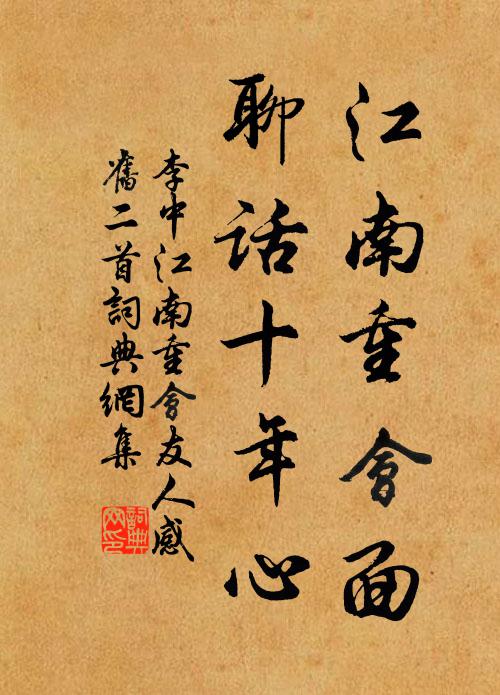 江南重會面
聊話十年心
李中江南重會友人感
舊二首詞典網集
詞典網印